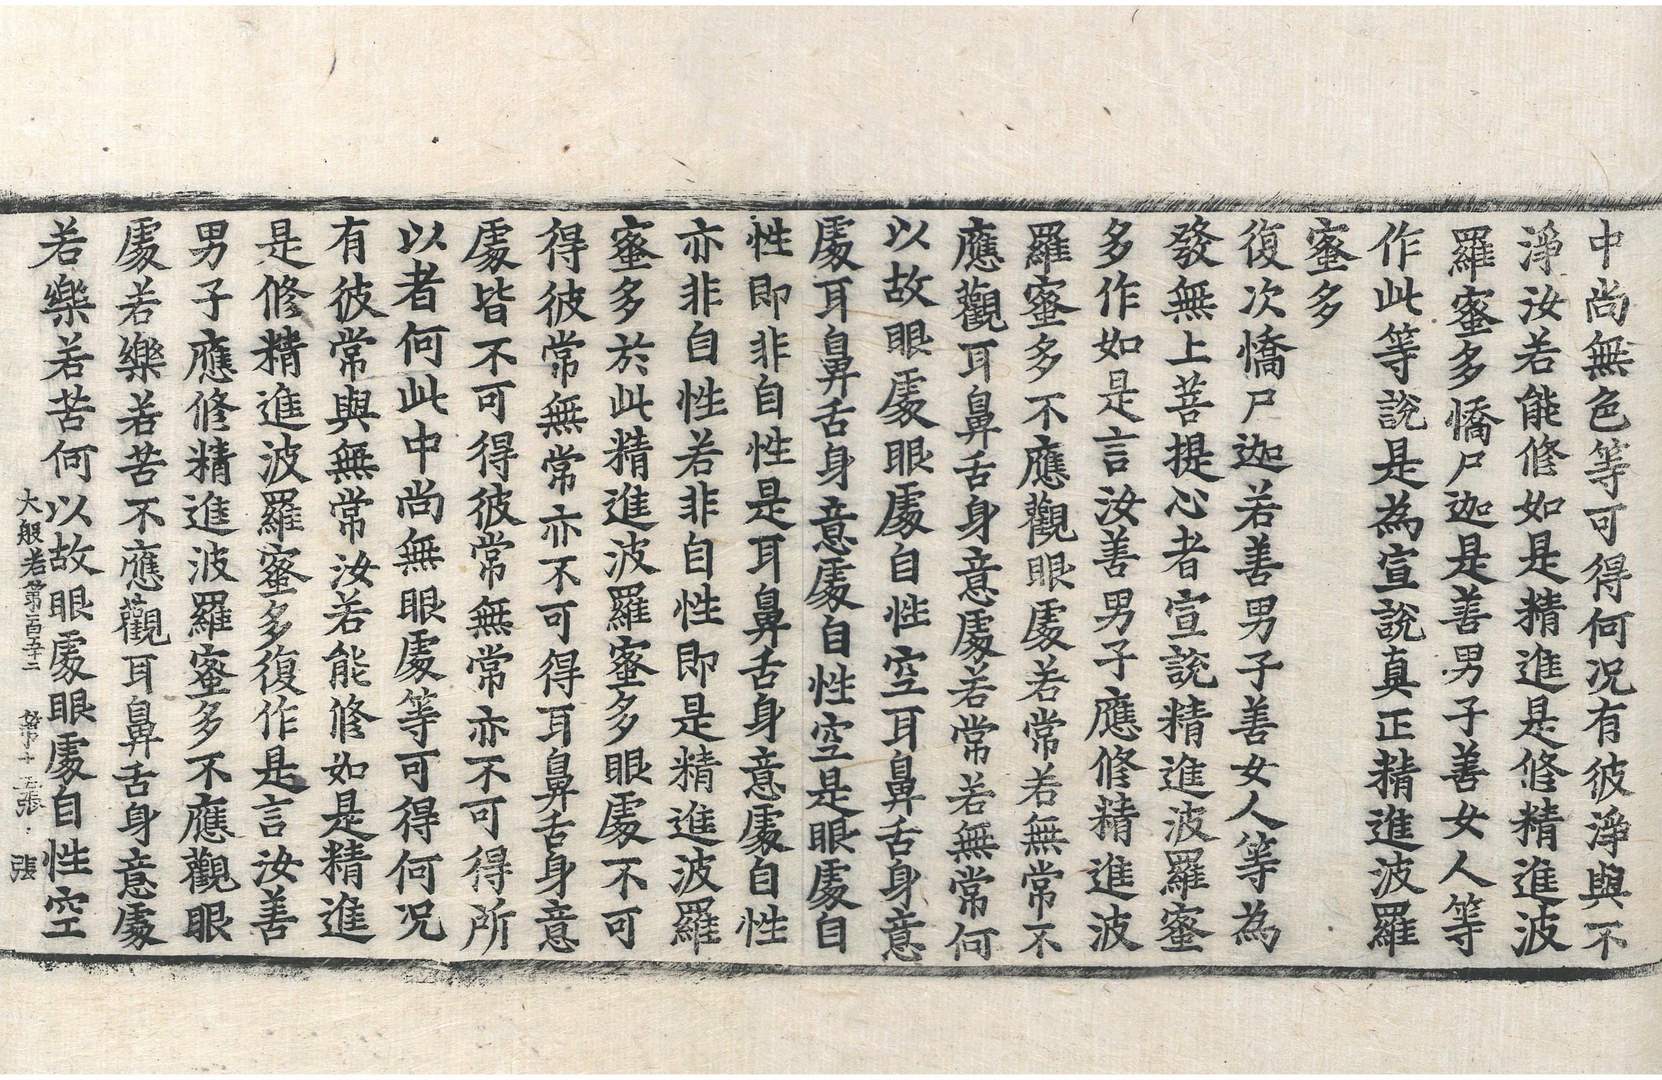 中尚無色等可得何况有彼淨與不
淨汝若能修如是精進是修精進波
羅蜜多憍尸迦是善男子善女人等
作此等說是為宣說真正精進波羅
蜜多
復次憍尸迦若善男子善女人等為
發無上菩提心者宣說精進波羅蜜
多作如是言汝善男子應修精進波
羅蜜多不應觀眼處若常若無常不
應觀耳鼻舌身意處若常若無常何
以故眼處眼處自性空耳鼻舌身意
處耳鼻舌身意處自性空是眼處自
性即非自性是耳鼻舌身意處自性
亦非自性若非自性即是精進波羅
蜜多於此精進波羅蜜多眼處不可
得彼常無常亦不可得耳鼻舌身意
處皆不可得彼常無常亦不可得所
以者何此中尚無眼處等可得何况
有彼常與無常汝若能修如是精進
是修精進波羅蜜多復作是言汝善
男子應修精進波羅蜜多不應觀眼
處若樂若苦不應觀耳鼻舌身意處
若樂若苦何以故眼處眼處自性空
大般若第一百五十二 第十五張 張